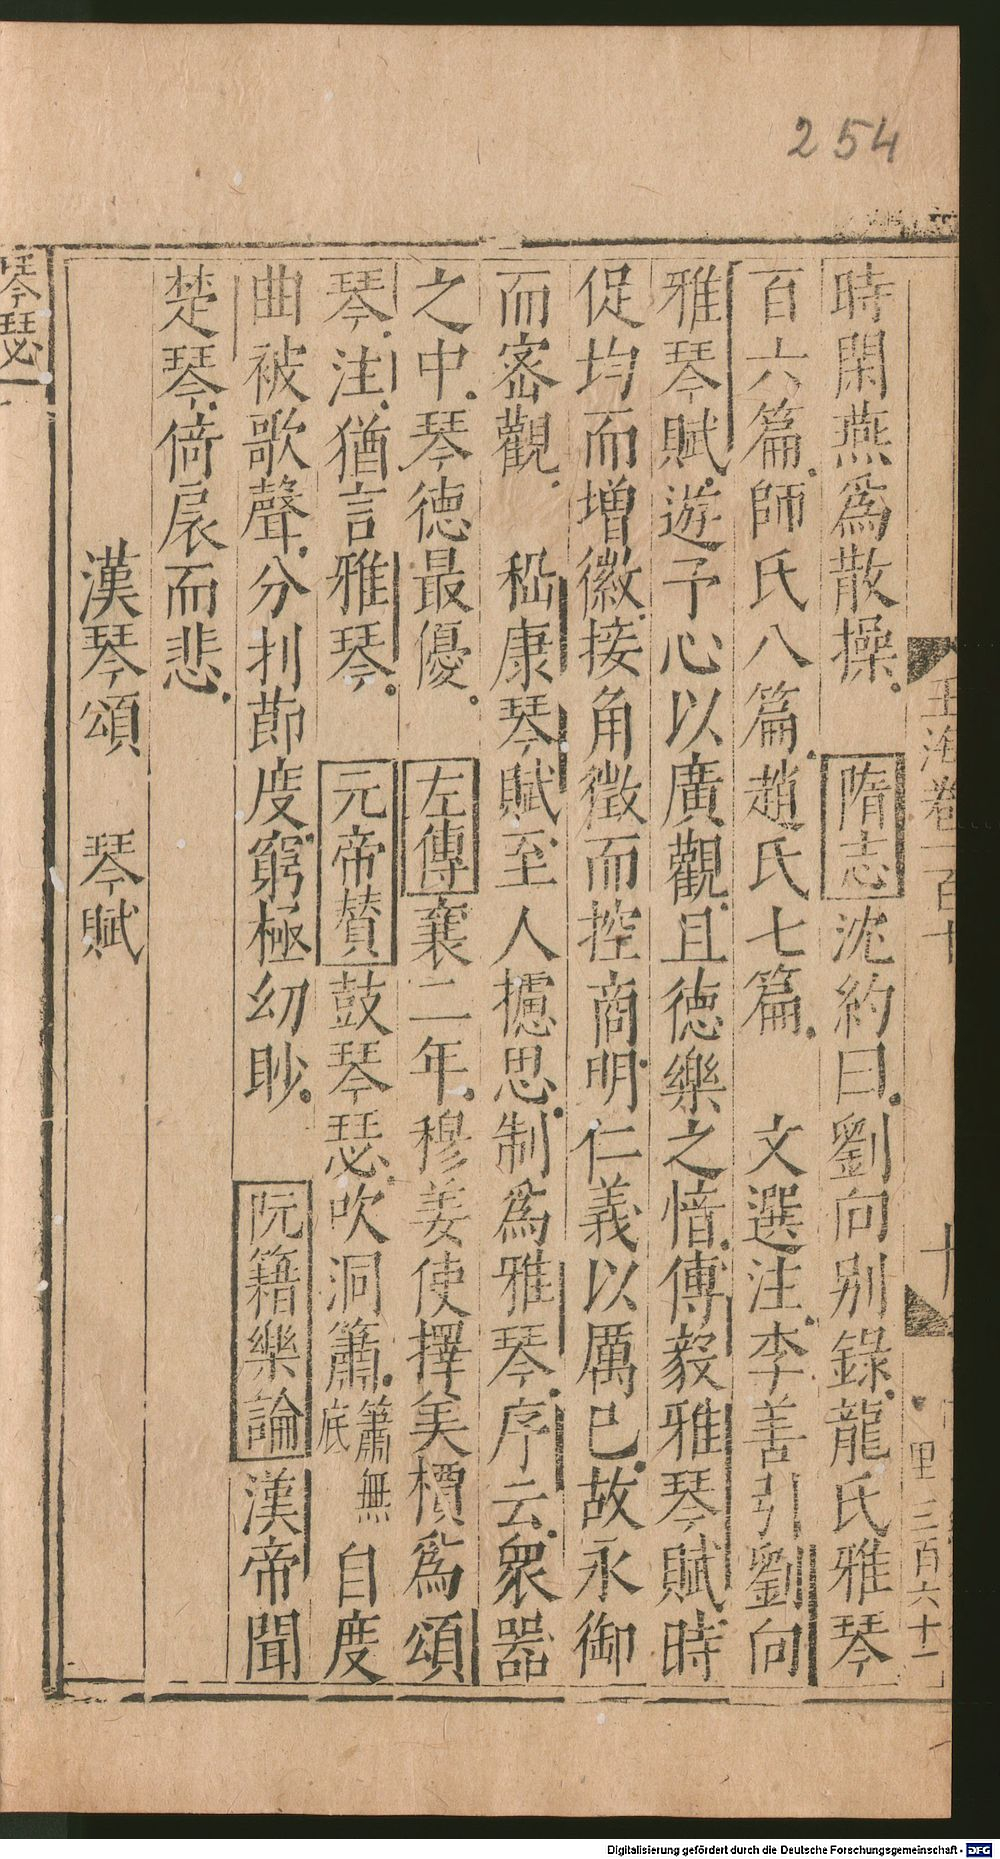 254
玉海卷一百十
十
里 三百六十一
時閑燕爲散操。 隋志沈約曰。劉向别錄。龍氏雅琴
百六篇。師氏八篇。趙氏七篇。 文選注。李善引劉向
雅琴賦。遊予心以廣觀。且德樂之愔愔。傅毅雅琴賦。時
促均而增徽。接角徵而控商。明仁義以厲己。故永御
而密觀。 嵇康琴賦。至人攄思。制爲雅琴。序云。衆器
之中。琴德最優。 左傳襄二年。穆姜使擇美檟爲頌
琴。注。猶言雅琴。 元帝贊鼓琴瑟。吹洞簫。簫無底 自度
曲被歌聲。分刌節度。窮極幼眇。 阮籍樂論 漢帝聞
楚琴。倚扆而悲。
漢琴頌 琴賦
琴瑟
Digitalisierung gefördert durch die Deutsche Forschungsgemeinschaft - DFG